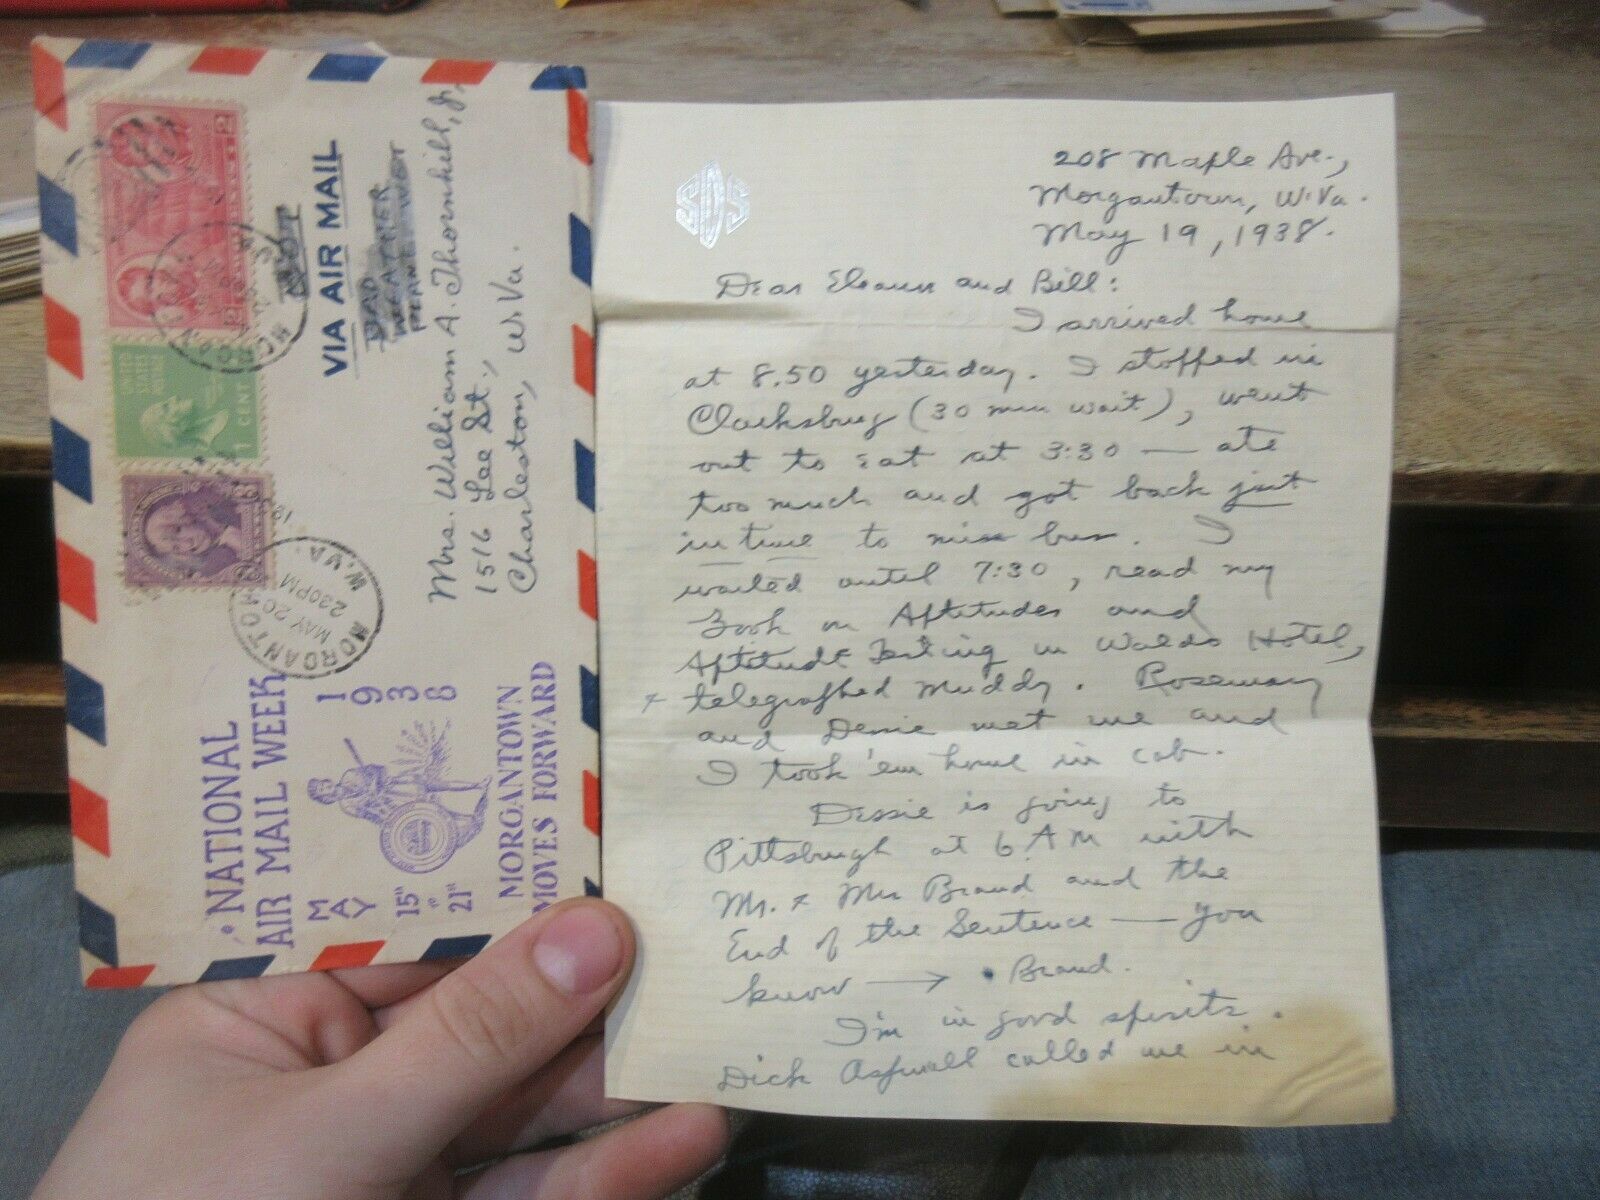 2
2
UNITED STATES POSTAGE
1 CENT
MORGANTOWN
W.VA.
MAY 20
230PM
VIA AIR MAIL
BAD
WEATHER
PLANE NOT
Mrs. William A. Thornhill, Jr.
1516 Lee St.,
Charleston, W. Va.
NATIONAL
AIR MAIL WEEK
MAY 15" TO 21"
1938
MORGANTOWN
MOVES FORWARD
208 Maple Ave.,
Morgantown, W. Va.
May 19, 1938.
Dear Eleanor and Bill:
I arrived home
at 8.50 yesterday. I stopped in
Clarksburg (30 min wait), went
out to eat at 3:30 — ate
too much and got back just
in time to miss bus. I
waited until 7:30, read my
book on Aptitudes and
Aptitude Testing in Waldo Hotel,
+ telegraphed Muddy. Rosemary
and Dessie met me and
I took 'em home in cab.
Dessie is going to
Pittsburgh at 6 AM with
Mr. + Mrs Brand and the
End of the Sentence — you
know → • Brand.
I'm in good spirits.
Dick Aspinall called me in